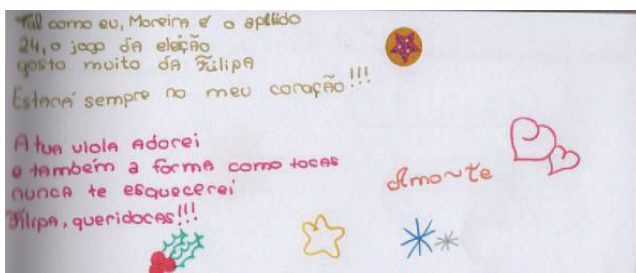 Tal como eu, Moreira é o apelido
24, o jogo da eleição
gosto muito da Filipa
Estará sempre no meu coração!!!
A tua viola Adorei
e também a forma como tocas
nunca te esquecerei
Filipa, queridocas!!!
Amo~te